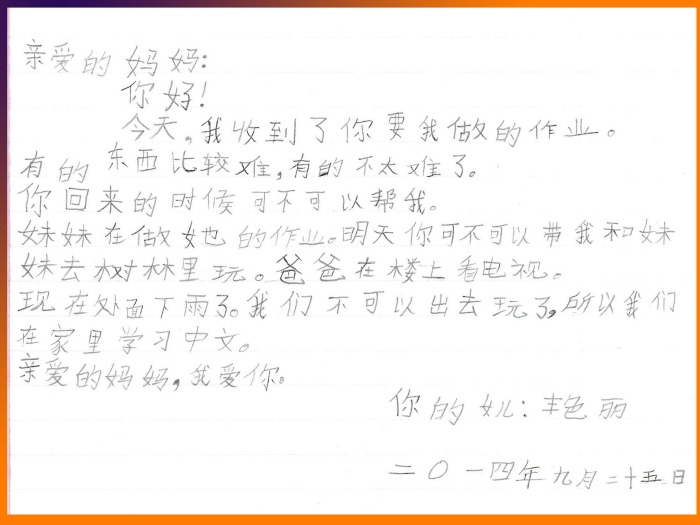 亲爱的妈妈:
你好!
今天,我收到了你要我做的作业。
有的东西比较难,有的不太难了。
你回来的时候可不可以帮我。
妹妹在做她的作业。明天你可不可以带我和妹
妹去树林里玩。爸爸在楼上看电视。
现在处面下雨了。我们不可以出去玩了,所以我们
在家里学习中文。
亲爱的妈妈,我爱你。
你的女儿:艳丽
二〇一四年九月二十五日